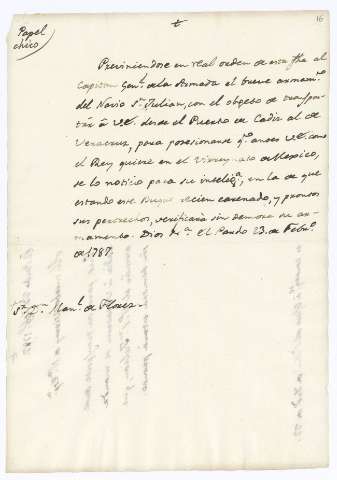 Papel
chico
16
Previniendose en real orden de esta fha al
Capitan Gen.l de la Armada el breve armam.to
del Navio S.n Julian, con el objeto de transpor-
tar à VE. desde el Puerto de Cadiz al de
Veracruz, para posesionarse q.to antes VE. como
el Rey quiere en el Virreynato de Mexico,
se lo noticio para su intelig.a, en la de que
estando este Buque recien carenado, y prontos
sus pertrechos, verificarà sin demora su ar-
mamento. Dios &.a El Pardo 23. de Febr.o
de 1787.
S.or D.n Man.l de Florez.